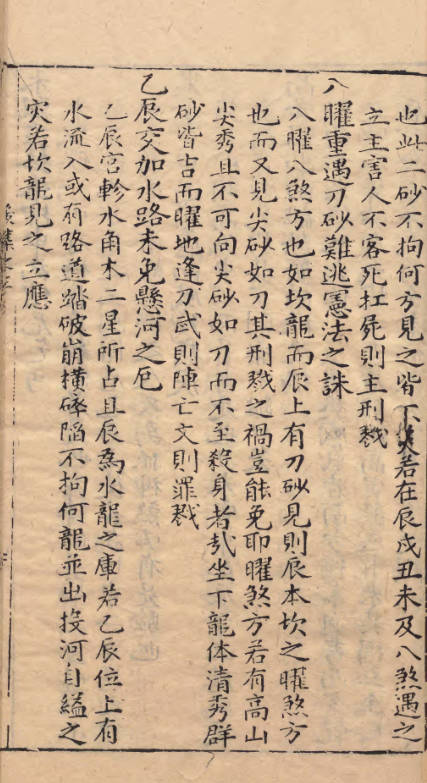 也此二砂不拘何方見之皆不火若在辰戌丑未及八煞遇之
立主害人不客死扛屍則主刑戮
八曜重遇刀砂難逃憲法之誅
八曜八煞方也如坎龍而辰上有刀砂見則辰本坎之曜煞方
也而又見尖砂如刀其刑戮之禍豈能免耶曜煞方若有高山
尖秀且不可向尖砂如刀而不至殺身者㢤坐下龍体清秀群
砂皆吉而曜地逢刀武則陣亡文則罪戮
乙辰交加水路未免懸河之厄
乙辰宮軫水角木二星所占且辰為水龍之庫若乙辰位上有
水流入或有路道踏破崩橫碎陷不拘何龍並出投河自縊之
灾若坎龍見之立應